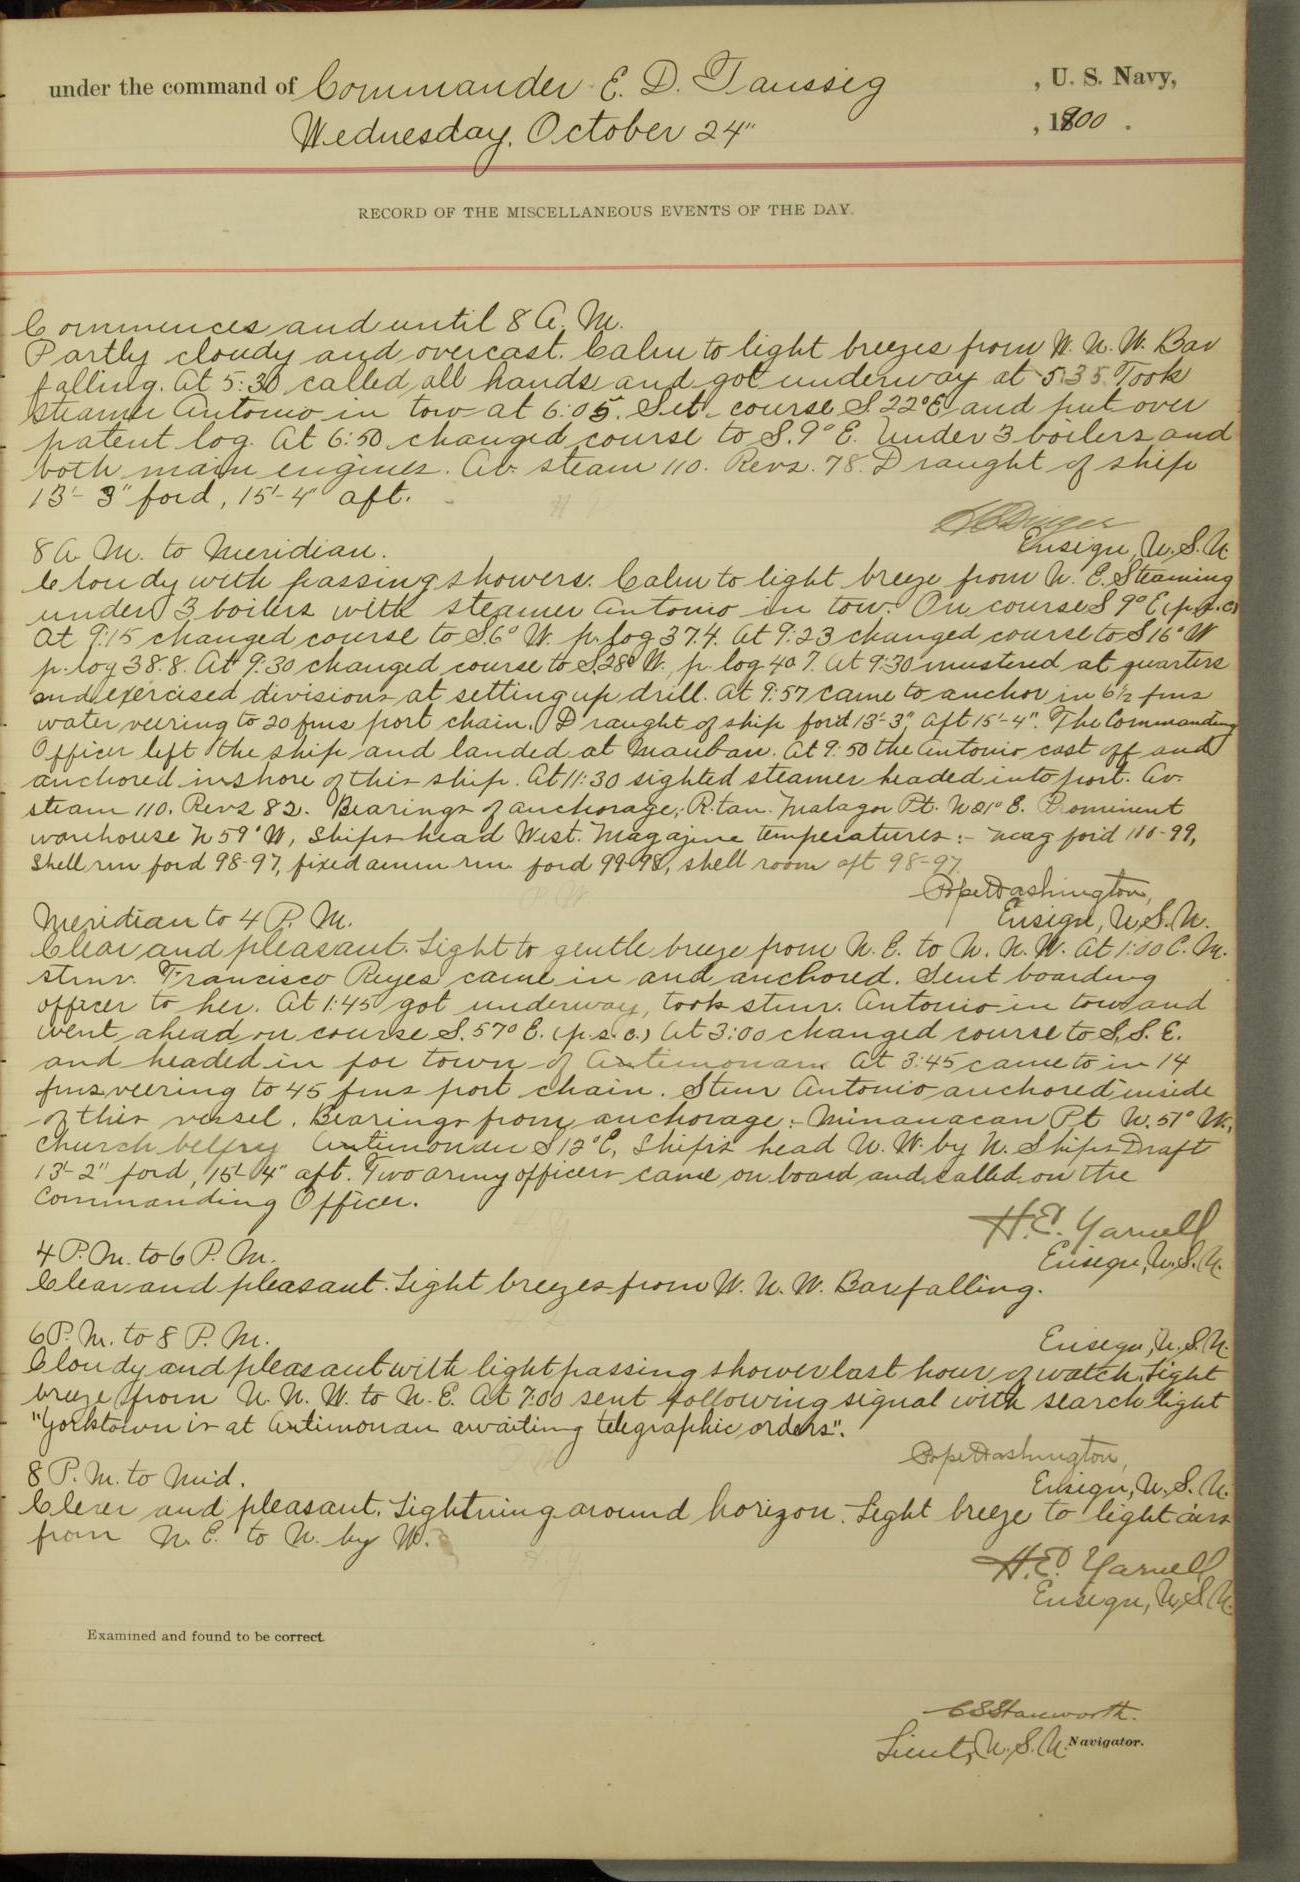 under the command of Commander E. D. Taussig , U. S. Navy,
Wednesday, October 24" , 1900 .
RECORD OF THE MISCELLANEOUS EVENTS OF THE DAY.
Commences and until 8 A. M.
Partly cloudy and overcast. Calm to light breezes from W. N. W. Bar
falling. At 5:30 called all hands and got underway at 5:35 Took
steamer Antonio in tow at 6:05. Set course S. 22° E and put over
patent log. At 6:50 changed course to S. 9° E. Under 3 boilers and
both main engines. Av. steam 110. Revs. 78. Draught of ship
13'- 3" for'd, 15'- 4" aft.
Ensign, U. S. N.
8 A. M. to Meridian.
Cloudy with passing showers. Calm to light breeze from N. E. Steaming
under 3 boilers with steamer Antonio in tow. On course S 9° E (p.s.c)
At 9:15 changed course to S. 6° W. p. log 37.4. At 9:23 changed course to S 16° W
p. log 38.8. At 9:30 changed course to S. 28° W. p. log 40.7. At 9:30 mustered at quarters
and exercised divisions at setting up drill. At 9:57 came to anchor in 6½ fms
water veering to 20 fms port chain. Draught of ship for'd 13'-3", aft 15'-4". The Commanding
Officer left the ship and landed at Mauban. At 9:50 the Antonio cast off and
anchored inshore of this ship. At 11:30 sighted steamer headed into port. Av.
steam 110. Revs 82. Bearings of anchorage; R. tan. Malagor Pt. N 21° E. Prominent
warehouse N 59° W, Ships head West. Magazine temperatures:- mag for'd 100-99,
Shell rm for'd 98-97, fixed amm rm for'd 99-98, shell room aft 98-97.
Pope Washington,
Ensign, U. S. N.
Meridian to 4 P. M.
Clear and pleasant. Light to gentle breeze from N. E. to N. N. W. At 1:00 P. M.
stmr. Francisco Reyes came in and anchored. Sent boarding
officer to her. At 1:45 got underway, took stmr. Antonio in tow and
went ahead on course S. 57° E. (p. s. c.) At 3:00 changed course to S. S. E.
and headed in for town of Antimonan At 3:45 came to in 14
fms veering to 45 fms port chain. Stmr Antonio anchored inside
of this vessel. Bearings from anchorage:- Minanacan Pt N. 51° W.,
Church belfry Antimonan S 12° E, Ship's head N. W. by N. Ships Draft
13'-2" for'd, 15'-04" aft. Two army officers came on board and called on the
Commanding Officer.
H. E. Yarnell
Ensign, U. S. N.
4 P. M. to 6 P. M.
Clear and pleasant. Light breezes from W. N. W. Bar falling.
Ensign, U. S. N.
6 P. M. to 8 P. M.
Cloudy and pleasant with light passing shower last hour of watch. Light
breeze from N. N. W. to N. E. At 7:00 sent following signal with search light
"Yorktown is at Antimonan awaiting telegraphic orders".
Pope Washington,
Ensign, U. S. N.
8 P. M. to Mid.
Clear and pleasant. Lightning around horizon. Light breeze to light airs
from N. E. to N. by W.
H. E. Yarnell
Ensign, U. S. N.
Examined and found to be correct.
C S Stanworth.
Lieut, U. S. N. Navigator.